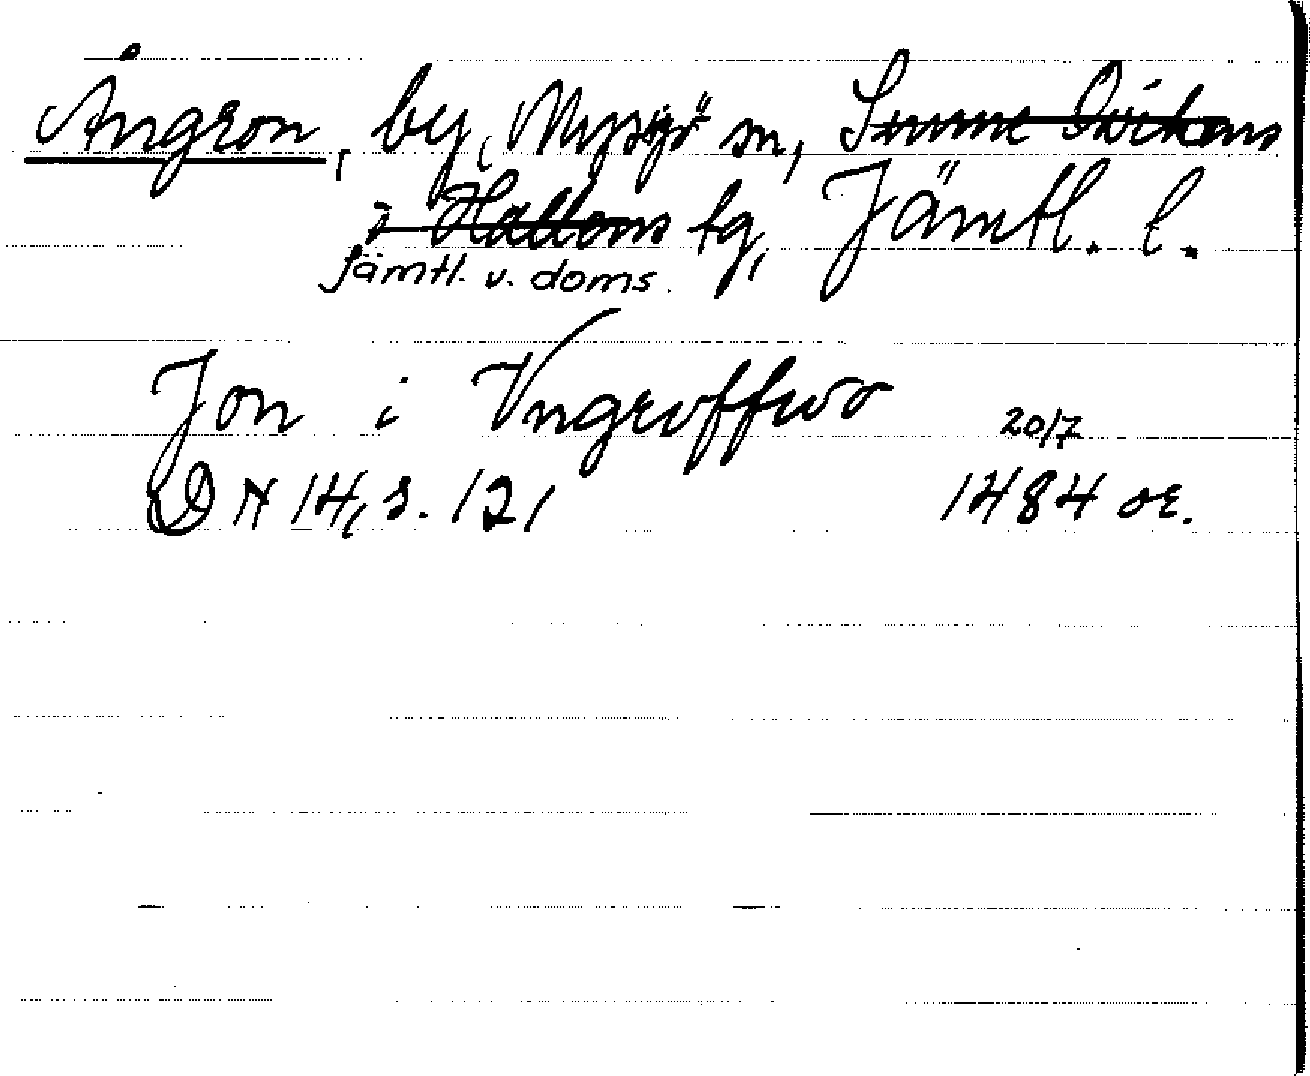 Ångron, by, Myssjö sn, Sunne Ovikens
o Hallens tg, Jämtl. l.
Jämtl. v. doms.
Jon i Vngroffwo
20/7
DN 14, s. 121 1484 or.